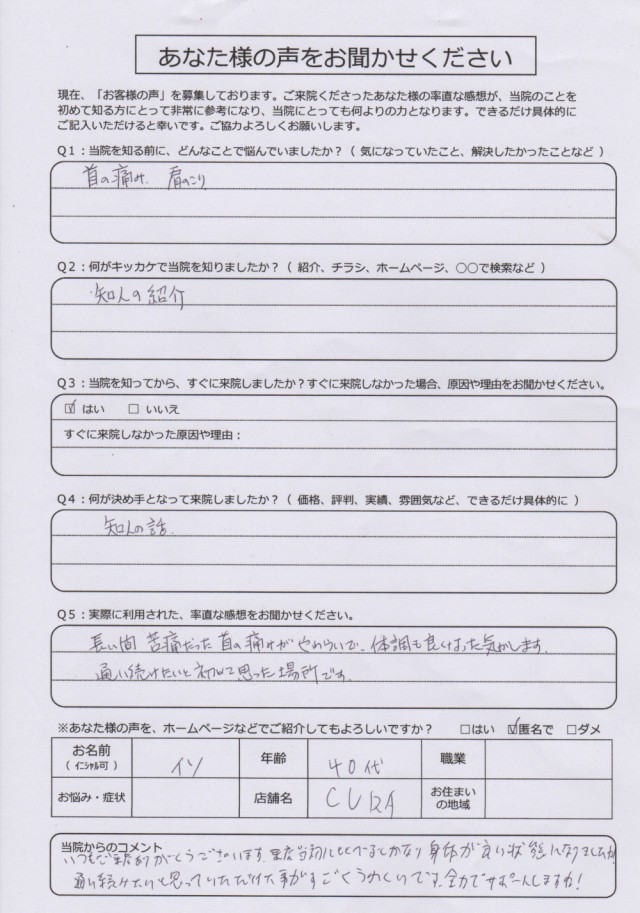 あなた様の声をお聞かせください
現在、「お客様の声」を募集しております。ご来院くださったあなた様の率直な感想が、当院のことを
初めて知る方にとって非常に参考になり、当院にとっても何よりの力となります。できるだけ具体的に
ご記入いただけると幸いです。ご協力よろしくお願いします。
Q1：当院を知る前に、どんなことで悩んでいましたか？（ 気になっていたこと、解決したかったことなど ）
首の痛み、肩のこり
Q2：何がキッカケで当院を知りましたか？（ 紹介、チラシ、ホームページ、○○で検索など ）
知人の紹介
Q3：当院を知ってから、すぐに来院しましたか？すぐに来院しなかった場合、原因や理由をお聞かせください。
☑ はい □ いいえ
すぐに来院しなかった原因や理由：
Q4：何が決め手となって来院しましたか？（ 価格、評判、実績、雰囲気など、できるだけ具体的に ）
知人の話。
Q5：実際に利用された、率直な感想をお聞かせください。
長い間 苦痛だった首の痛みがやわらいで、体調も良くなった気がします。
通い続けたいと初めて思った場所です。
※あなた様の声を、ホームページなどでご紹介してもよろしいですか？ □はい ☑匿名で □ダメ
お名前 イソ 年齢 40代 職業
（ ｲﾆｼｬﾙ可 ）
お悩み・症状 店舗名 CURA お住まい
の地域
当院からのコメント
いつもご来店ありがとうございます。来店当初にくらべるとかなり身体が良い状態になりましたね
通い続けたいと思っていただけた事がすごくうれしいです。全力でサポートしますね！